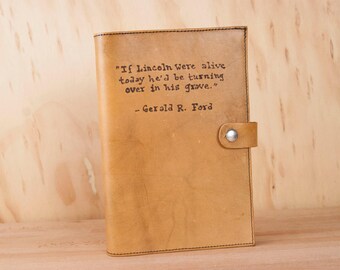 "If Lincoln were alive
today he'd be turning
over in his grave."
- Gerald R. Ford